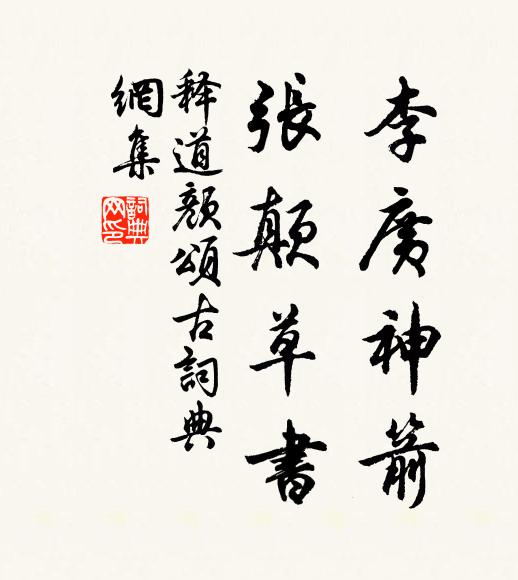 李廣神箭
張顛草書
释道顏頌古詞典
網集
詞典
网印